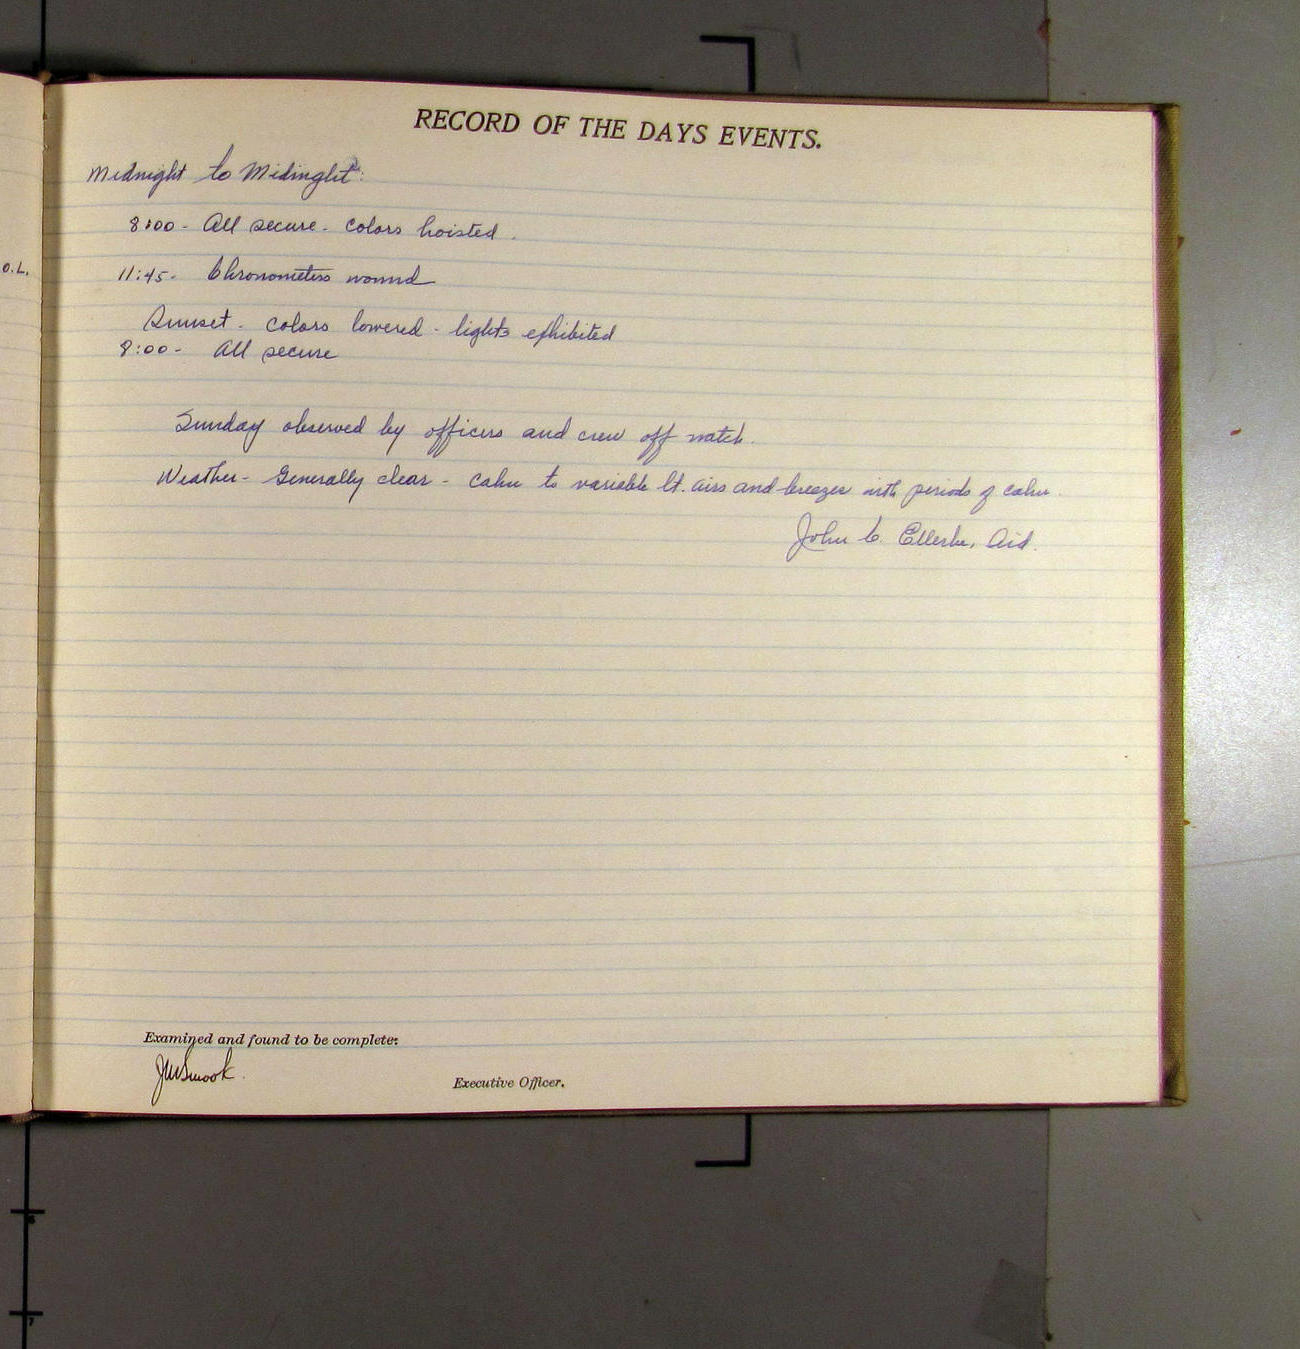 RECORD OF THE DAYS EVENTS.
Midnight to Midinght:
8:00 - All secure - colors hoisted.
O.L.
11:45 - Chronometers wound
Sunset - colors lowered - lights exhibited
8:00 - All secure
Sunday observed by officers and crew off watch.
Weather - Generally clear - calm to variable lt. airs and breezes with periods of calm.
John C. Ellerbe, Aid.
Examined and found to be complete:
Executive Officer.
6
7